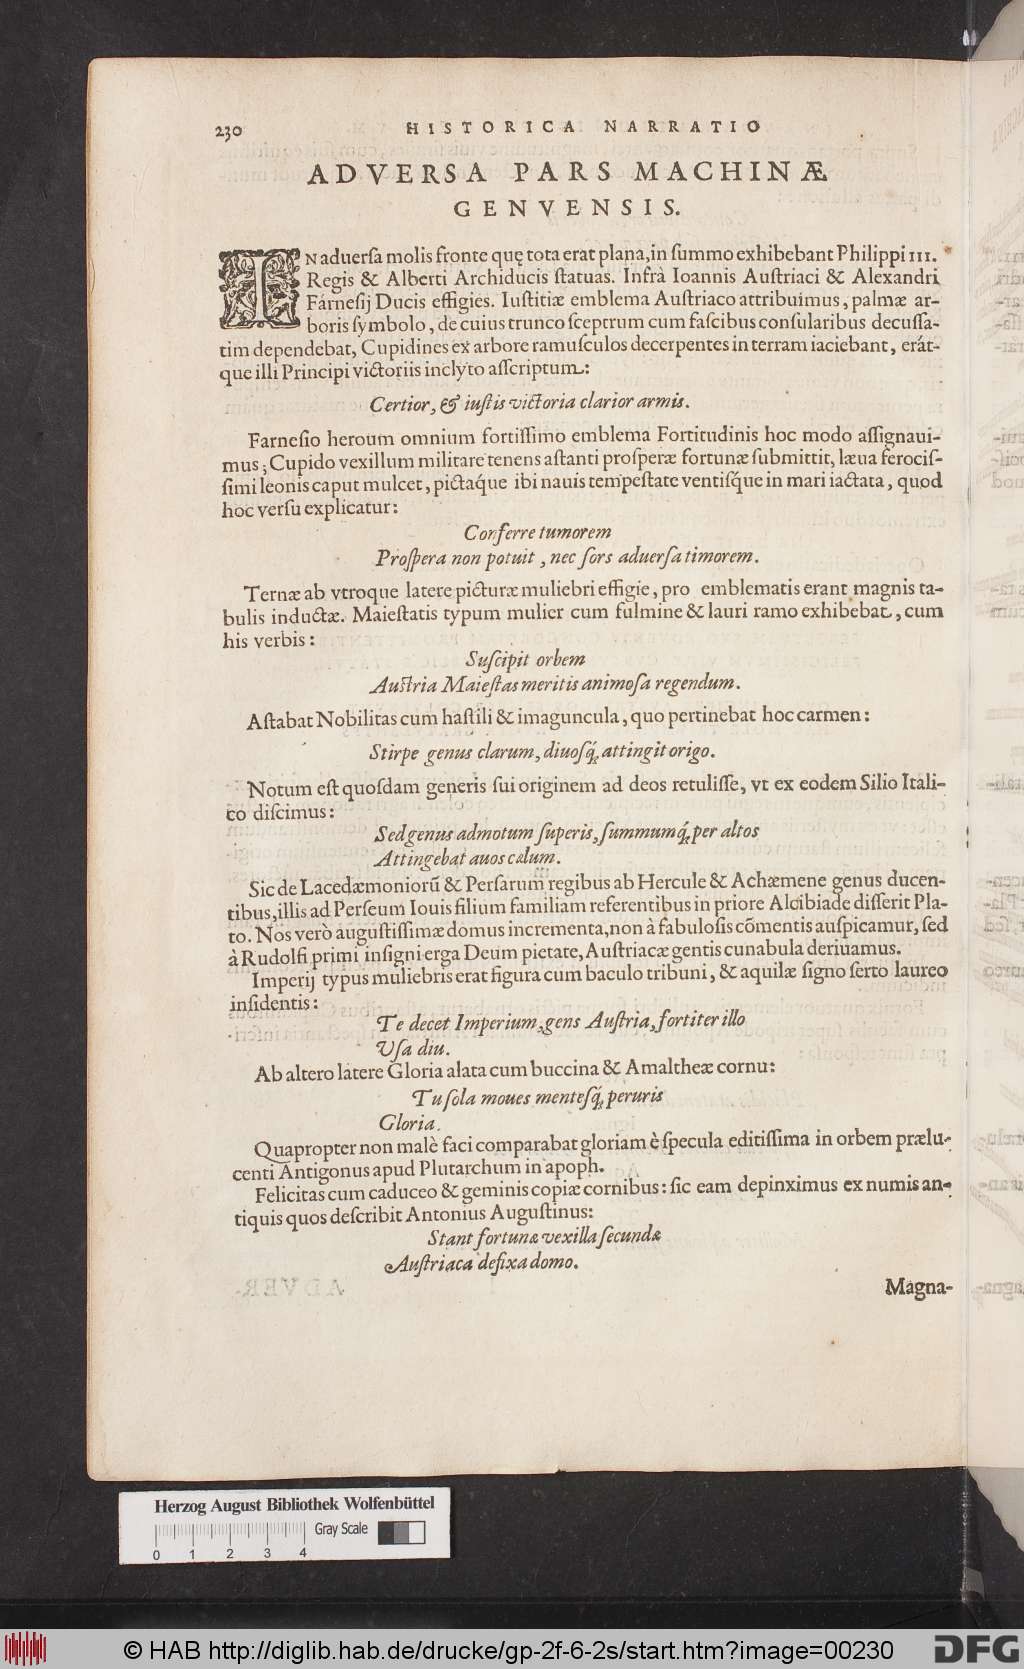 230 HISTORICA NARRATIO
ADVERSA PARS MACHINÆ
GENVENSIS.
IN aduersa molis fronte quę tota erat plana, in summo exhibebant Philippi III.
Regis & Alberti Archiducis statuas. Infrà Ioannis Austriaci & Alexandri
Farnesij Ducis effigies. Iustitiæ emblema Austriaco attribuimus, palmæ ar-
boris symbolo, de cuius trunco sceptrum cum fascibus consularibus decussa-
tim dependebat, Cupidines ex arbore ramusculos decerpentes in terram iaciebant, erát-
que illi Principi victoriis inclyto asscriptum:
Certior, & iustis victoria clarior armis.
Farnesio heroum omnium fortissimo emblema Fortitudinis hoc modo assignaui-
mus; Cupido vexillum militare tenens astanti prosperæ fortunæ submittit, læua ferocis-
simi leonis caput mulcet, pictaque ibi nauis tempestate ventisque in mari iactata, quod
hoc versu explicatur:
Conferre tumorem
Prospera non potuit, nec sors aduersa timorem.
Ternæ ab vtroque latere picturæ muliebri effigie, pro emblematis erant magnis ta-
bulis inductæ. Maiestatis typum mulier cum fulmine & lauri ramo exhibebat, cum
his verbis:
Suscipit orbem
Austria Maiestas meritis animosa regendum.
Astabat Nobilitas cum hastili & imaguncula, quo pertinebat hoc carmen:
Stirpe genus clarum, diuosq́; attingit origo.
Notum est quosdam generis sui originem ad deos retulisse, vt ex eodem Silio Itali-
co discimus:
Sed genus admotum superis, summumq́; per altos
Attingebat auos cælum.
Sic de Lacedæmoniorũ & Persarum regibus ab Hercule & Achæmene genus ducen-
tibus, illis ad Perseum Iouis filium familiam referentibus in priore Alcibiade disserit Pla-
to. Nos verò augustissimæ domus incrementa, non à fabulosis cõmentis auspicamur, sed
à Rudolfi primi insigni erga Deum pietate, Austriacæ gentis cunabula deriuamus.
Imperij typus muliebris erat figura cum baculo tribuni, & aquilæ signo serto laureo
insidentis:
Te decet Imperium, gens Austria, fortiter illo
Vsa diu.
Ab altero làtere Gloria alata cum buccina & Amaltheæ cornu:
Tu sola moues mentesq́; peruris
Gloria.
Quapropter non malè faci comparabat gloriam è specula editissima in orbem prælu-
centi Antigonus apud Plutarchum in apoph.
Felicitas cum caduceo & geminis copiæ cornibus: sic eam depinximus ex numis an-
tiquis quos describit Antonius Augustinus:
Stant fortunæ vexilla secundæ
Austriaca defixa domo.
Magna-
Herzog August Bibliothek Wolfenbüttel
Gray Scale
0 1 2 3 4
© HAB http://diglib.hab.de/drucke/gp-2f-6-2s/start.htm?image=00230
DFG